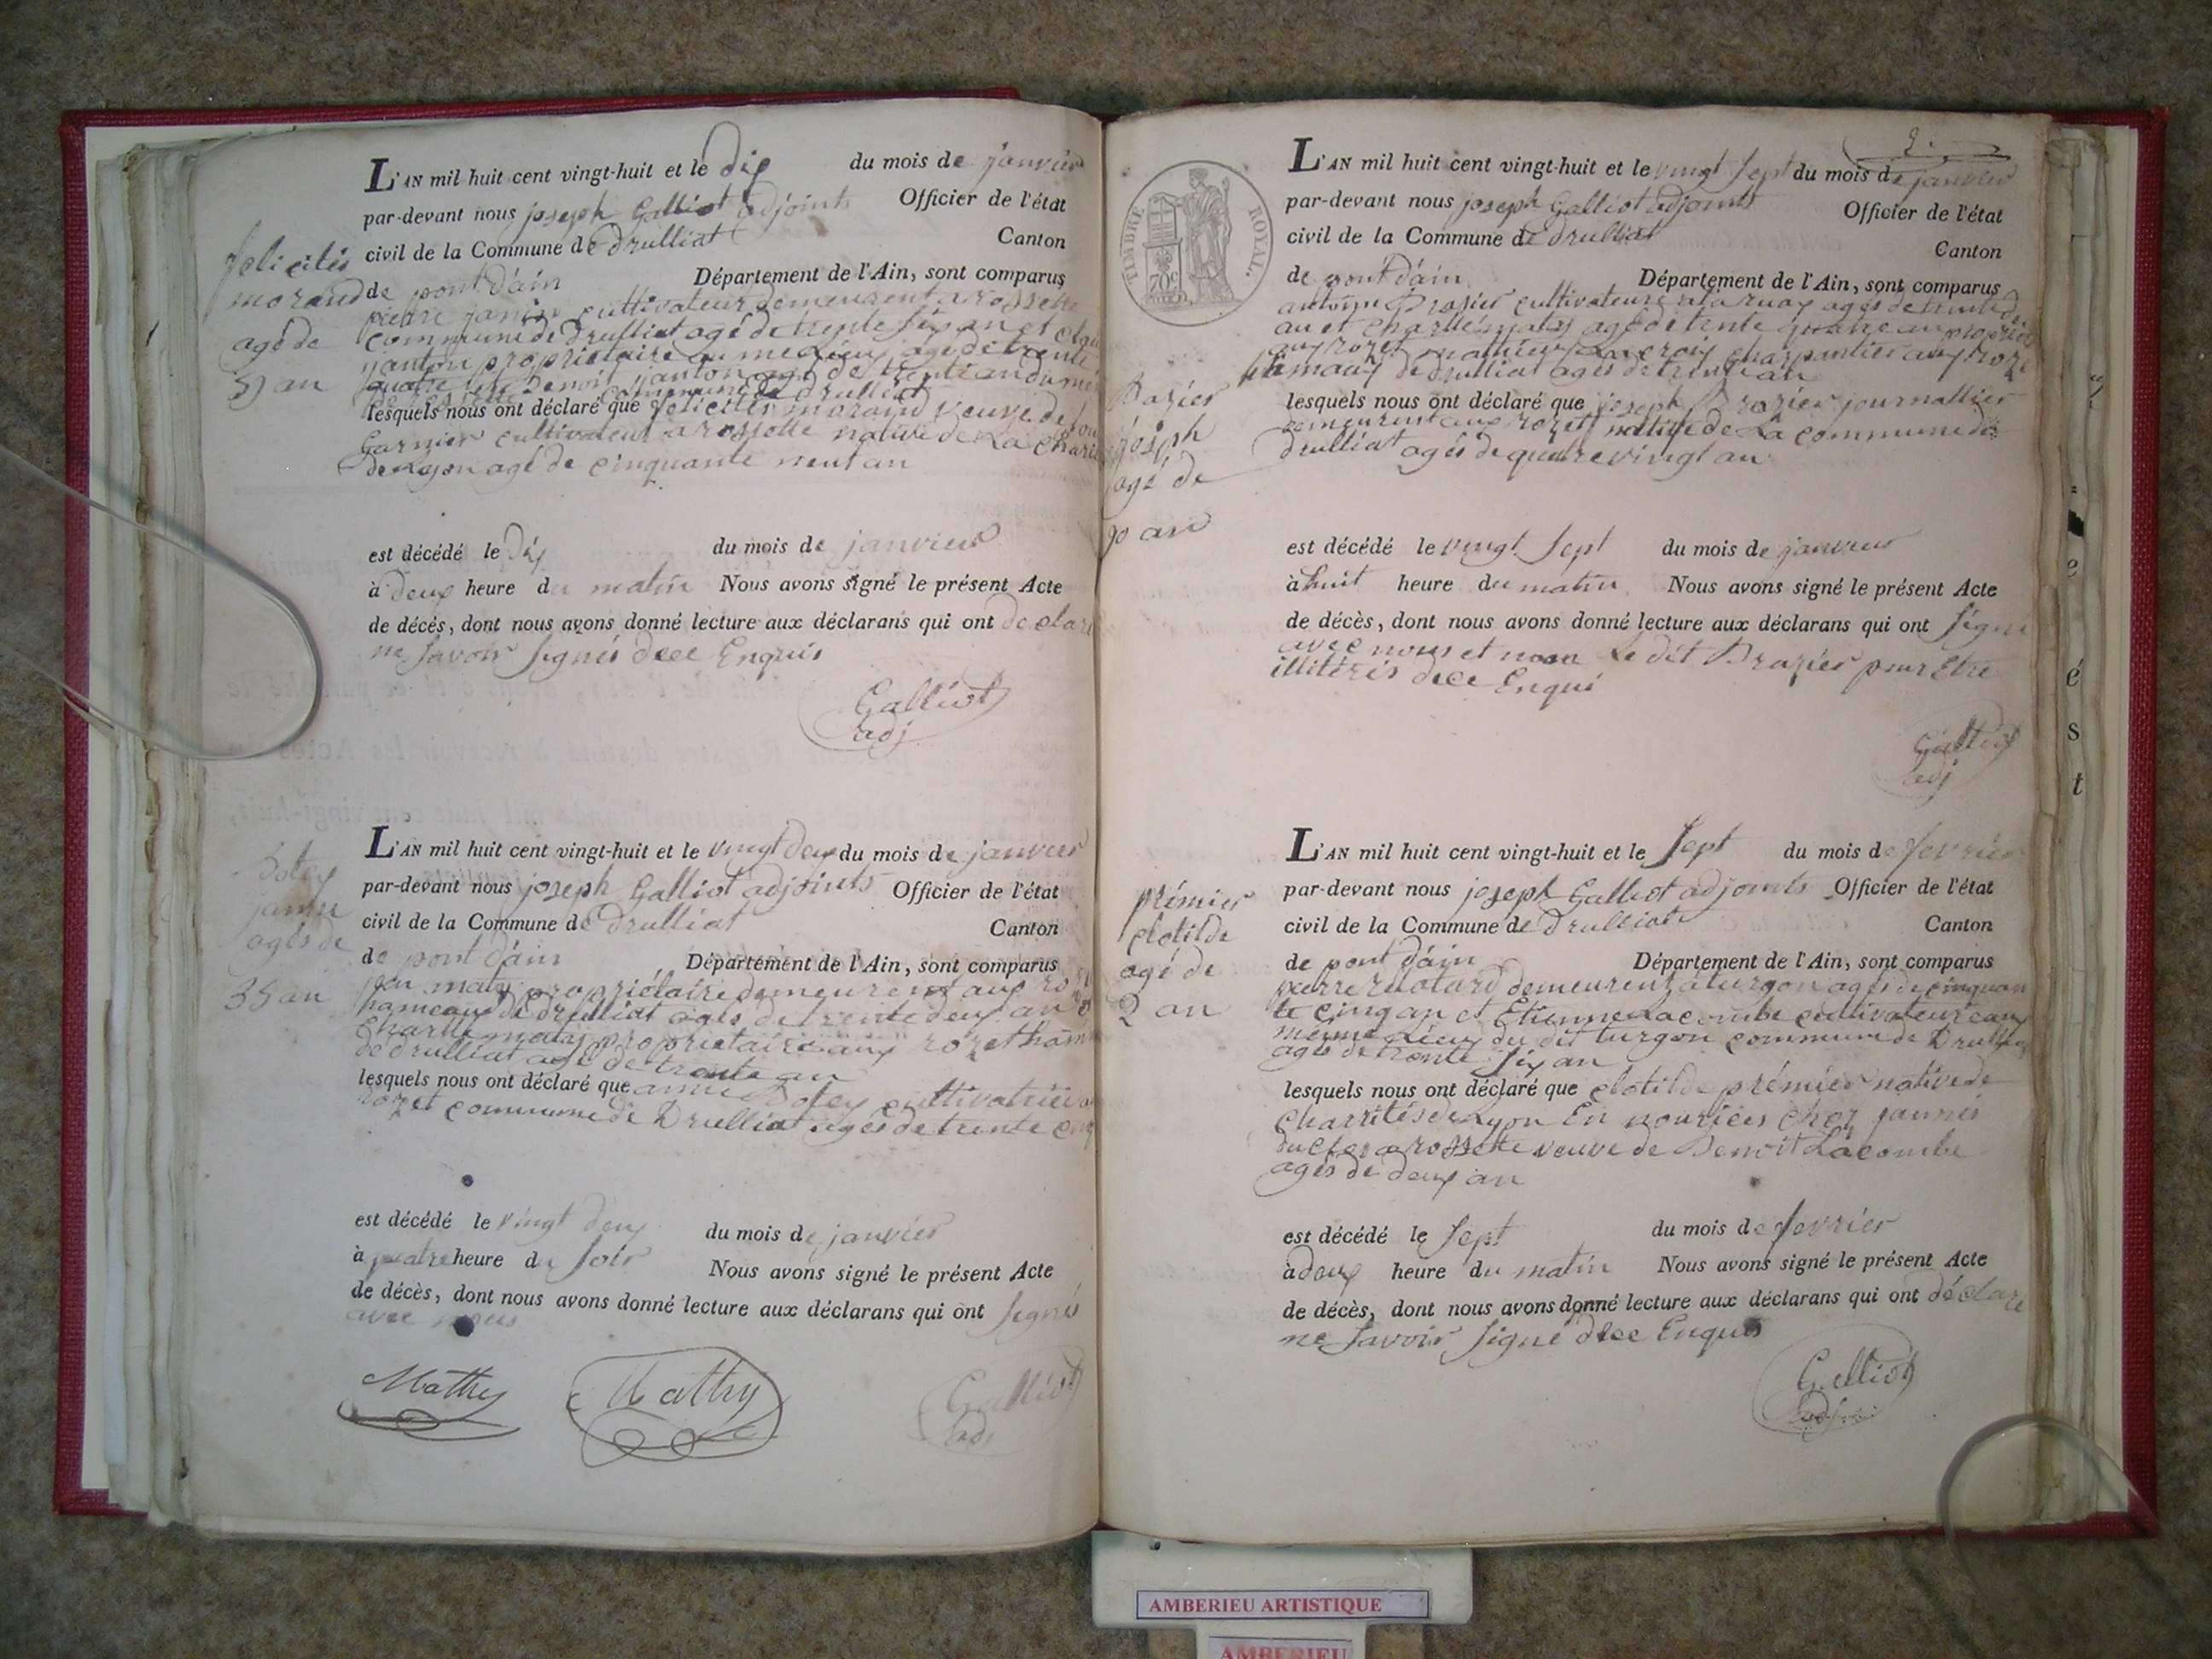 L'AN mil huit cent vingt-huit et le dix du mois de janvier
par-devant nous joseph Galliot adjoints Officier de l'état
civil de la Commune de Drulliat Canton
de pont d'ain Département de l'Ain, sont comparus
pierre janin cultivateur demeurent a rossette
commune de Drulliat agé de trente six an et
janton propriétaire au me Lieux agé de trente
quatre Benoit janton agé de trente an du
commune de Drulliat
lesquels nous ont déclaré que felicités morand veuve de
Garnier cultivateur a rossette native de La charité
de Lyon agé de cinquante neuf an
felicités
morand
agé de
59 an
est décédé le dix du mois de janvier
à deux heure du matin Nous avons signé le présent Acte
de décès, dont nous avons donné lecture aux déclarans qui ont declaré
ne savoir signés dece Enquis
Galliot
adj
L'AN mil huit cent vingt-huit et le vingt deux du mois de janvier
par-devant nous joseph Galliot adjoints Officier de l'état
civil de la Commune de Drulliat Canton
de pont d'ain Département de l'Ain, sont comparus
maty propriétaire demeurent aux
hameaux de drulliat agés de trente deux an
Charle maty propriétaire aux rozet ham
de drulliat agé de trente an
lesquels nous ont déclaré que Botey cultivatrice
rozet commune de Drulliat agés de trente cinq
Botey
agés de
35 an
est décédé le vingt deux du mois de janvier
à quatre heure du soir Nous avons signé le présent Acte
de décès, dont nous avons donné lecture aux déclarans qui ont signés
avec nous
Mathy Mathy Galliot
adj
2
TIMBRE ROYAL.
70 c
L'AN mil huit cent vingt-huit et le vingt sept du mois de janvier
par-devant nous joseph Galliot adjoints Officier de l'état
civil de la Commune de Drulliat Canton
de pont d'ain Département de l'Ain, sont comparus
antoine Brazier cultivateure agés de trente
an et charle maty agé de trente quatre an
aux rozet mathieu Lacroix charpentier aux roze
hamaux de drulliat agés de trente an
lesquels nous ont déclaré que joseph Brazier journallier
demeurent aux rozet native de La commune de
drulliat agés de quatre vingt an
joseph
agé de
90 an
est décédé le vingt sept du mois de janvier
à huit heure du matin Nous avons signé le présent Acte
de décès, dont nous avons donné lecture aux déclarans qui ont signe
avec nous et non Le dit Brazier pour Etre
illitérés dece Enqui
Galliot
adj
L'AN mil huit cent vingt-huit et le sept du mois de fevrier
par-devant nous joseph Galliot adjoints Officier de l'état
civil de la Commune de Drulliat Canton
de pont d'ain Département de l'Ain, sont comparus
pierre demeurent a turgon agés de cinquan
te cinq an et Etienne Lacombe cultivateur aux
même Lieux du dit turgon commune de Drulliat
agés de trente six an
lesquels nous ont déclaré que clotilde prémier native de
charrités de Lyon En nourices chez
duclos a rossette veuve de Benoit Lacombe
agés de deux an
prémier
clotilde
agé de
2 an
est décédé le sept du mois de fevrier
à deux heure du matin Nous avons signé le présent Acte
de décès, dont nous avons donné lecture aux déclarans qui ont déclaré
ne savoir signe dece Enquis
Galliot
adj
AMBERIEU ARTISTIQUE
AMBERIEU